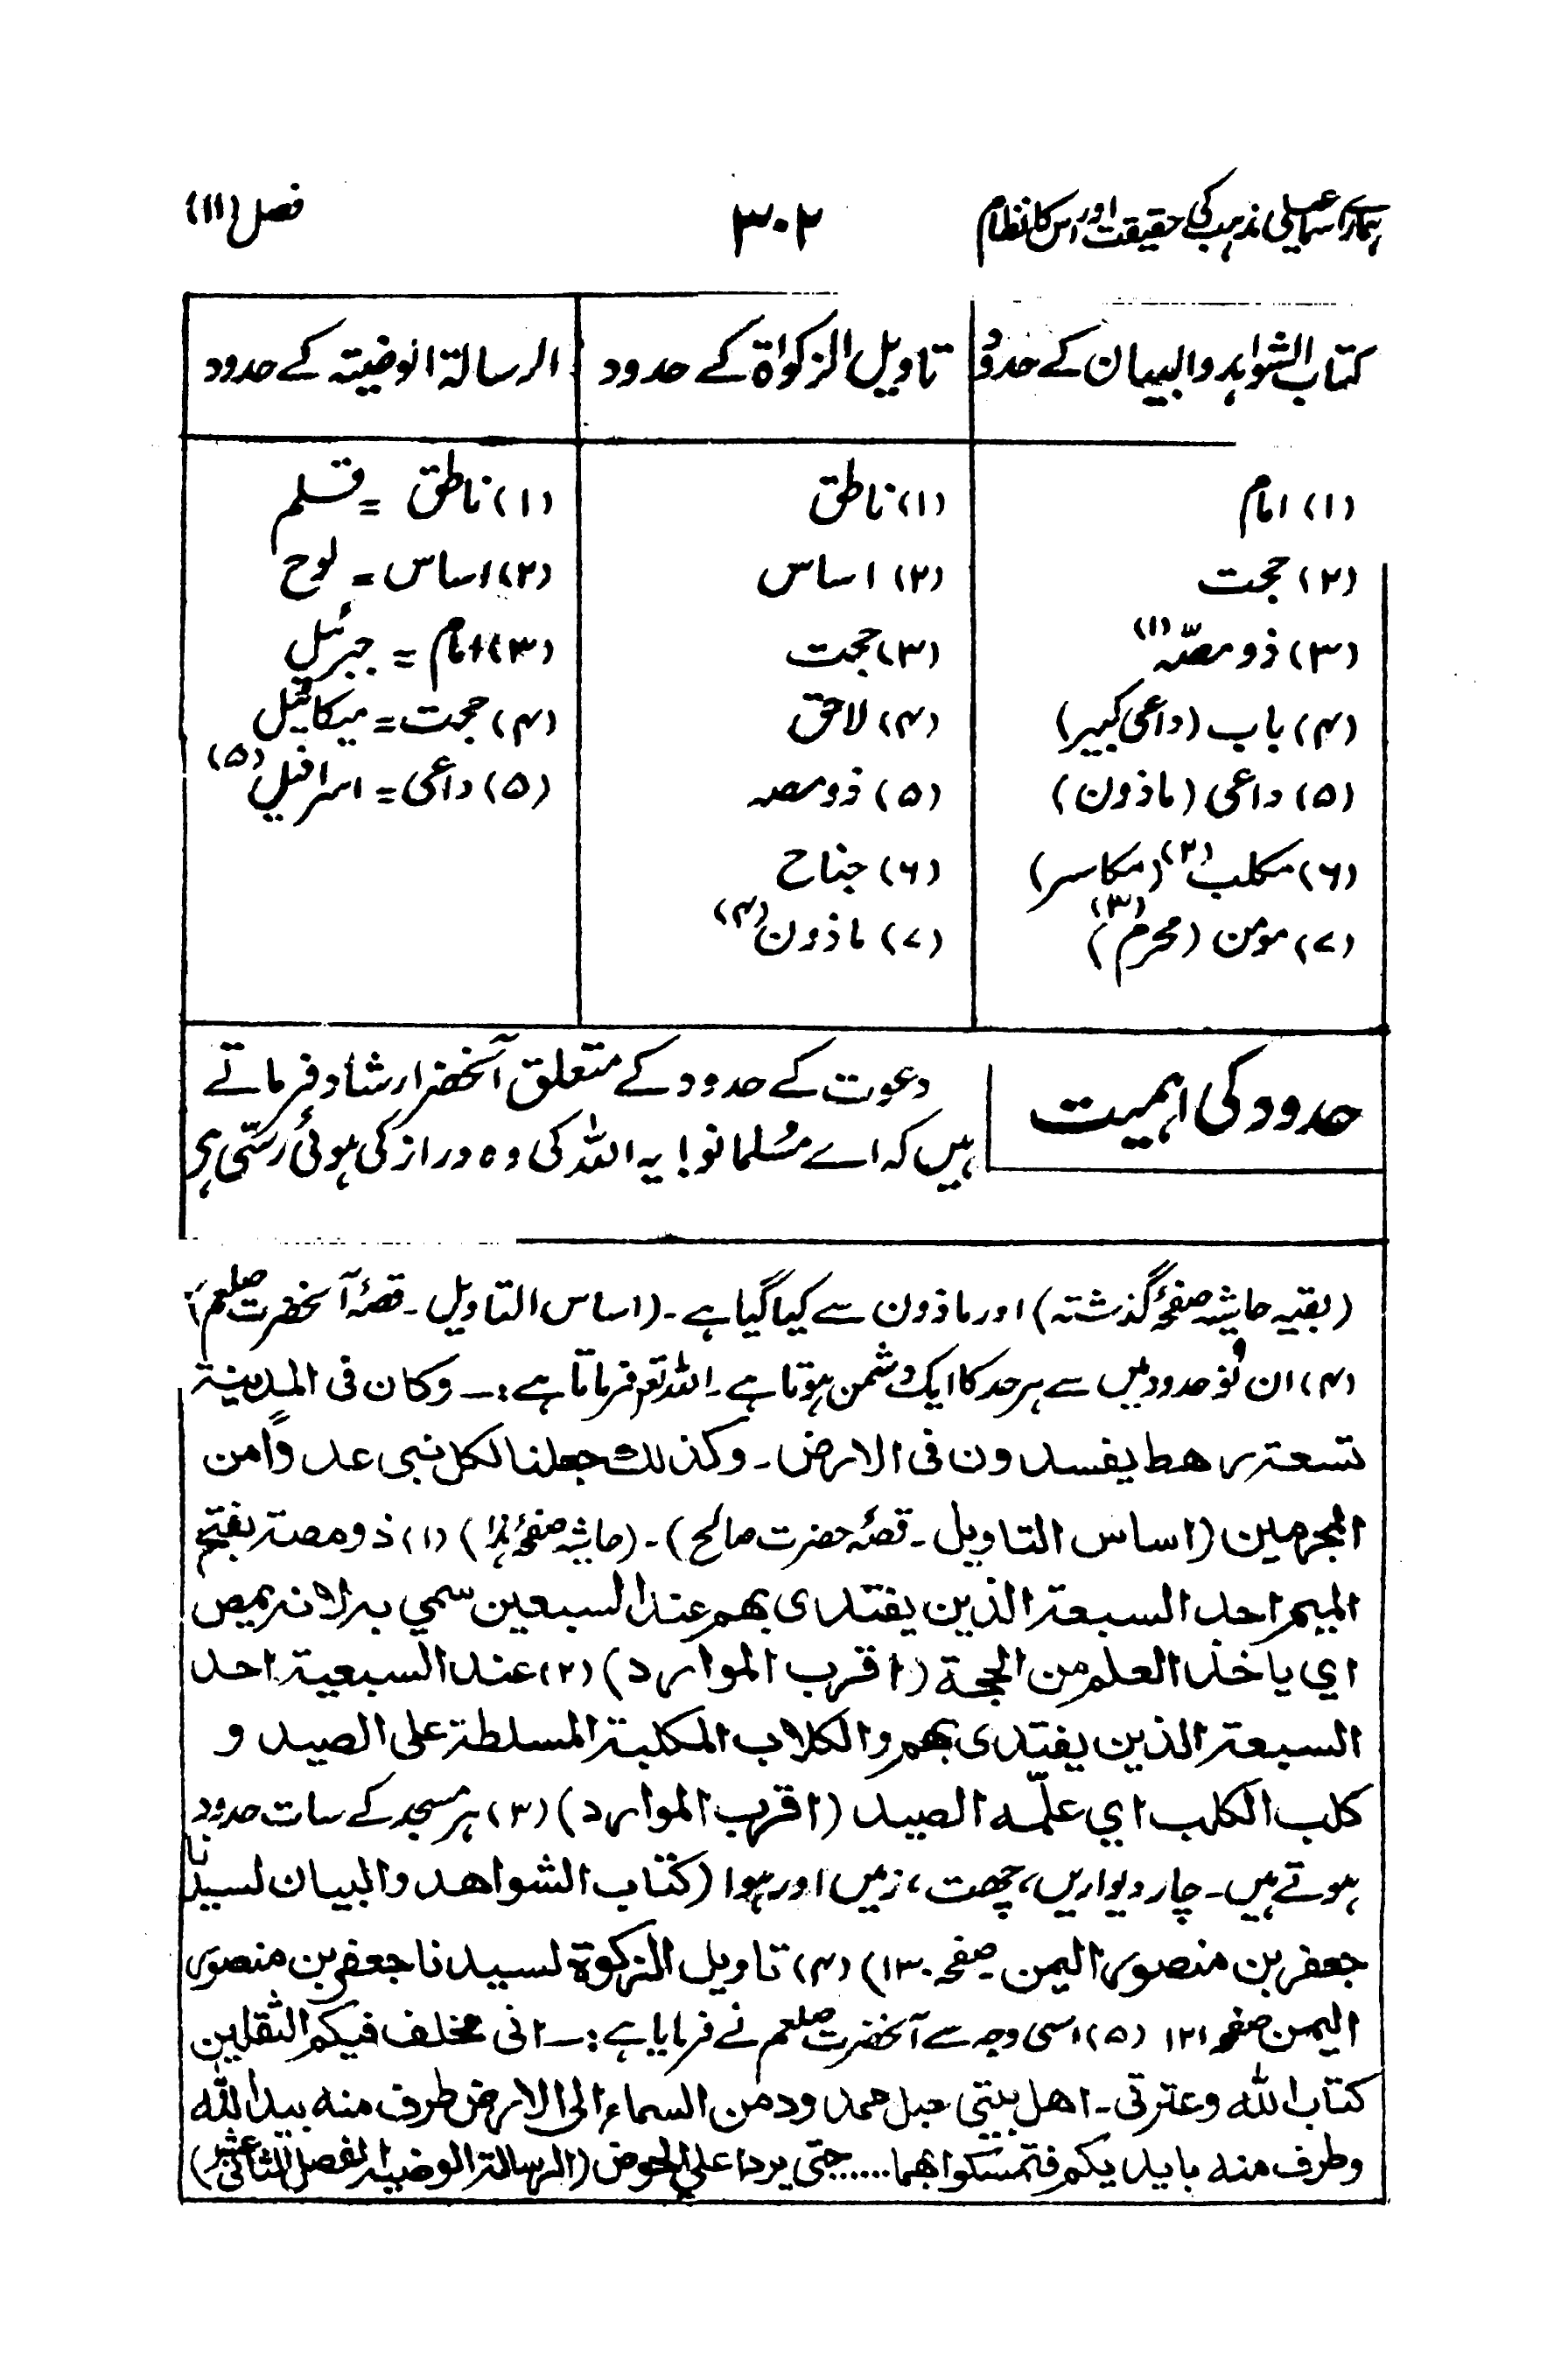 ہمارے اسماعیلی مذہب کی حقیقت اور اس کا نظام ۳۰۲ فصل (۱۱)
کتاب الشواہد والبیان کے حدود تاویل الزکواۃ کے حدود الرسالۃ الوضیتہ کے حدود
(۱) امام (۱) ناطق (۱) ناطق = قلم
(۲) حجت (۲) اساس (۲) اساس = لوح
(۳) ذو مصّہ (۱) (۳) حجت (۳) امام = جبرئیل
(۴) باب (داعی کبیر) (۴) لاحق (۴) حجت = میکائیل
(۵) داعی (ماذون) (۵) ذو مصہ (۵) داعی = اسرافیل (۵)
(۶) مکلب (۲) (مکاسر) (۶) جناح
(۷) مومن (محرم) (۳) (۷) ماذون (۴)
حدود کی اہمیت
دعوت کے حدود کے متعلق آنحضرؐ ارشاد فرماتے
ہیں کہ اے مُسلمانو! یہ اللہ کی وہ دراز کی ہوئی رسّی ہی
(بقیہ حاشیہ صفحۂ گذشتہ) اور ماذون سے کیا گیا ہے ۔ (اساس التاویل ۔ قصۂ آنحضرت صلعم)
(۴) ان نَو حدود میں سے ہر حد کا ایک دشمن ہوتا ہے ۔ اللہ تعم فرماتا ہے :۔ وکان فی المدینۃ
تسعۃ رھط یفسدون فی الارض ۔ وکذلک جعلنا لکل نبی عدوًا من
المجرمین (اساس التاویل ۔ قصۂ حضرت صالح) ۔ (حاشیہ صفحۂ ہٰذا) (۱) ذو مصۃ بفتح
المیم احد السبعۃ الذین یفتدی بھم عند السبعین سمي بہ لانہ یمص
اي یاخذ العلم من الحجۃ (اقرب الموارد) (۲) عند السبعیۃ احد
السبعۃ الذین یفتدی بھم والکلاب المکلبۃ المسلطۃ علی الصید و
کلب الکلب اي علّمہ الصید (اقرب الموارد) (۳) ہر مسجد کے سات حدود
ہوتے ہیں ۔ چار دیواریں، چھت، زمیں اور ہوا (کتاب الشواھد والبیان لسیدنا
جعفر بن منصور الیمن صفحہ ۱۳۰) (۴) تاویل الزکوۃ لسیدنا جعفر بن منصور
الیمن صفحہ ۱۲۱ (۵) اسی وجہ سے آنحضرت صلعم نے فرمایا ہے :۔ انی مخلف فیکم الثقلین
کتاب اللہ وعترتی ۔ اھل بیتی حبل ممدود من السماء الی الارض طرف منہ بید اللہ
وطرف منہ بایدیکم فتمسکوا بھما ...... حتی یردا علي الحوض (الرسالۃ الوضیۃ الفصل الثانی عشر)